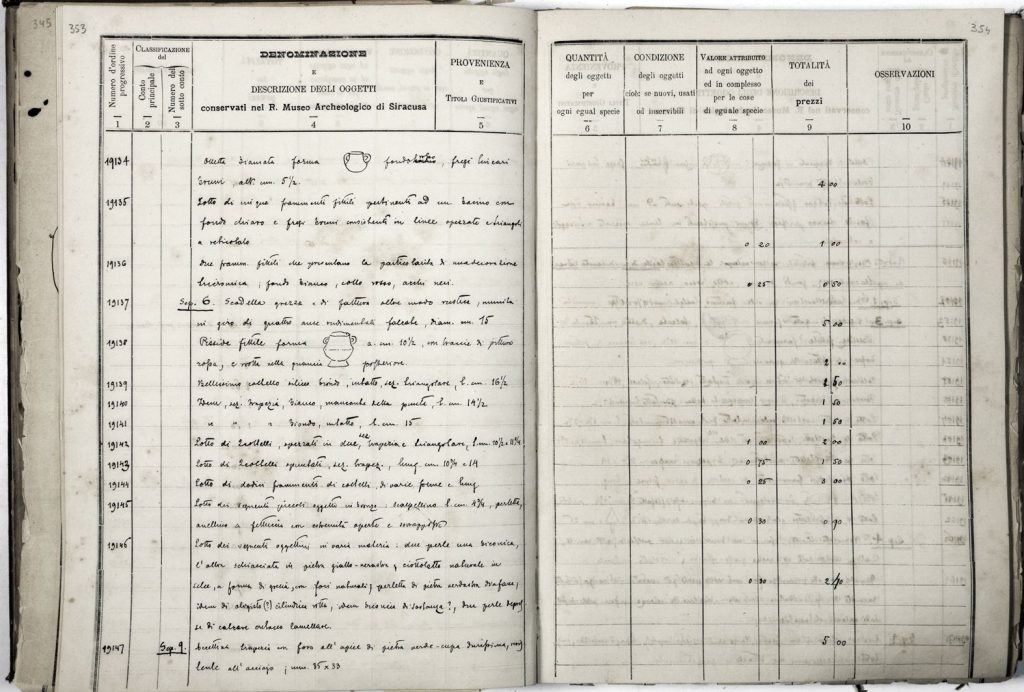 345
353
Numero d'ordine progressivo
CLASSIFICAZIONE
del
Conto principale
Numero del sotto conto
DENOMINAZIONE
E
DESCRIZIONE DEGLI OGGETTI
conservati nel R. Museo Archeologico di Siracusa
PROVENIENZA
E
TITOLI GIUSTIFICATIVI
1 2 3 4 5
19134 forma fondo, fregi lineari
bruni, alt. cm. 5 1/2.
19135 Lotto di cinque frammenti fittili pertinenti ad un bacino con
fondo chiaro e fregi bruni consistenti in linee spezzate e triangoli
a reticolato
19136 Due framm. fittili che presentano la particolarità di una decorazione
tricromica; fondo bianco, collo rosso, archi neri.
19137 Sep. 6. Scodella grezza e di fattura oltre modo rustica, munita
in giro di quattro anse rudimentali falcate, diam. cm. 15
19138 Pisside fittile forma a. cm. 10 1/2, con traccie di pittura
rossa, e rotta nella posteriore
19139 Bellissimo coltello siliceo biondo, intatto, sez. triangolare, l. cm. 16 1/2
19140 Idem, sez. trapezia, bianco, mancante della punta, l. cm. 14 1/2
19141 " " " " biondo, intatto, l. cm. 15
19142 Lotto di 2 coltelli, spezzati in due, sez. trapezia e triangolare, l. cm.
19143 Lotto di 2 coltelli spuntati, sez. trapez., lung. cm. 10 3/4 e 14
19144 Lotto di dodici frammenti di coltelli, di varie forme e lung.
19145 Lotto dei seguenti piccoli oggetti in bronzo: scalpellino l. cm. 4 3/4, perletta,
anellino a fettuccia con estremità aperte e
19146 Lotto dei seguenti oggettini in varia materia: due perle una biconica,
l'altra schiacciata in pietra giallo-nerastra, ciottoletto naturale in
selce, a forma di, con fori naturali; perletta di pietra verdastra diafana;
idem di alabastro (?) cilindrica rotta, idem biconica di sostanza?, due perle depres
se di calcare lamellare.
19147 Sep. 9. Accettina con foro all'apice di pietra verde-cupa durissima,
lente all'acciaio; mm. 35 x 33
354
QUANTITÀ
degli oggetti
per
ogni egual specie
CONDIZIONE
degli oggetti
cioè: se nuovi, usati
od inservibili
VALORE ATTRIBUITO
ad ogni oggetto
ed in complesso
per le cose
di eguale specie
TOTALITÀ
dei
prezzi
OSSERVAZIONI
6 7 8 9 10
4 00
0 20 1 00
0 25 0 50
5 00
2 00
2 50
1 50
1 50
1 00 2 00
0 75 1 50
0 25 3 00
0 30 0 90
0 30 2 40
5 00